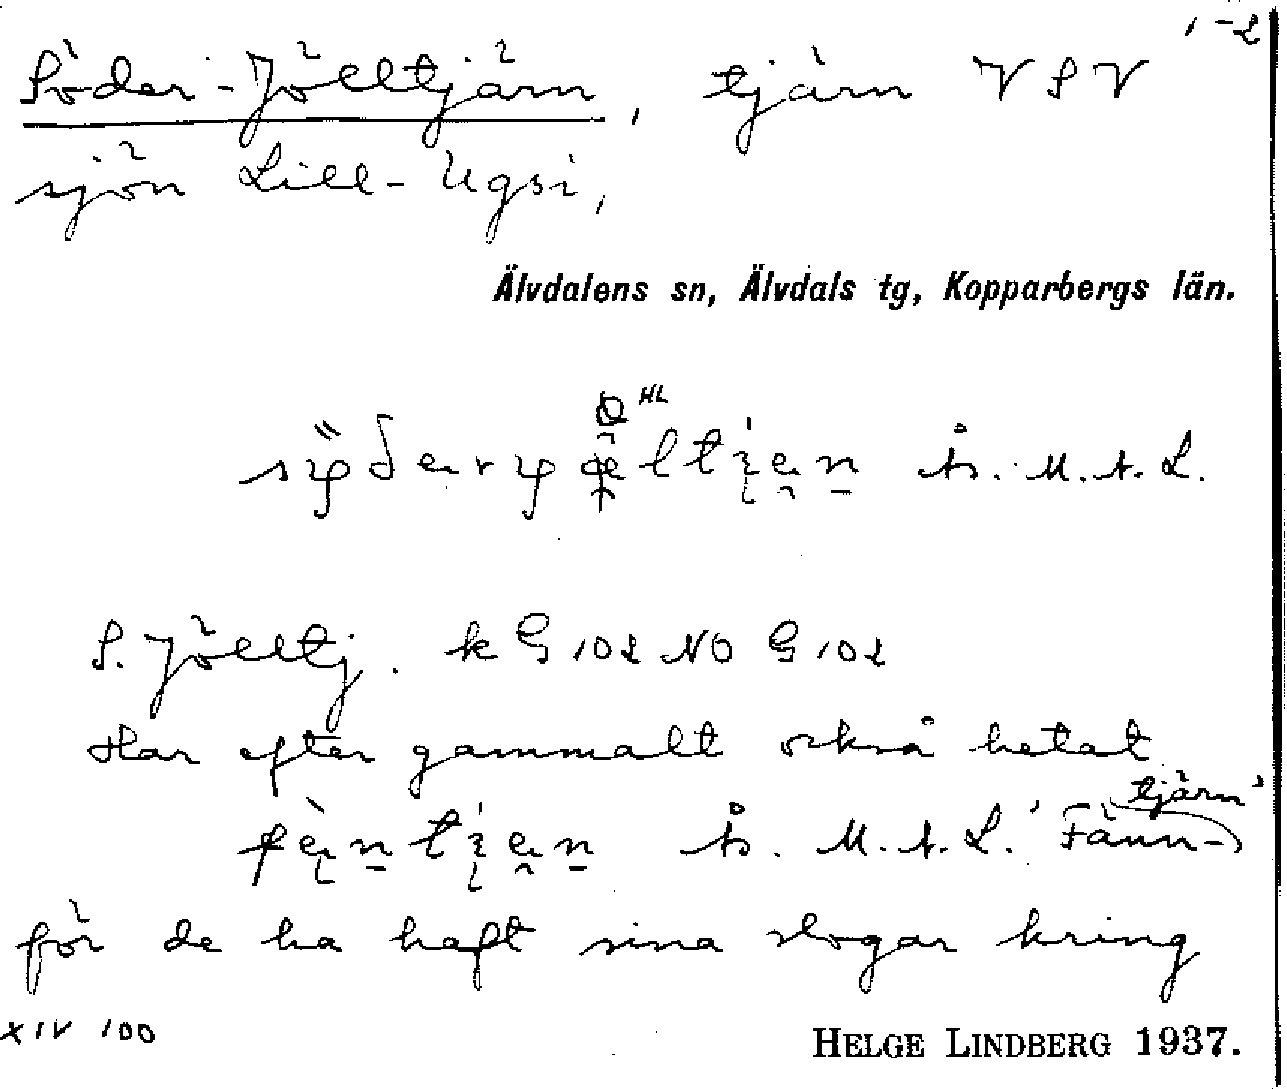 1-2
Söder-Jölltjärn, tjärn VSV
sjön Lill-Ugsi,
Älvdalens sn, Älvdals tg, Kopparbergs län.
HL
Ås. M.A.L.
S. Jölltj. k G 102 NO G 102
Har efter gammalt också hetat
tjärn'
Ås. M.A.L. 'Fänn-
för de ha haft sina slogar kring
XIV 100
HELGE LINDBERG 1937.